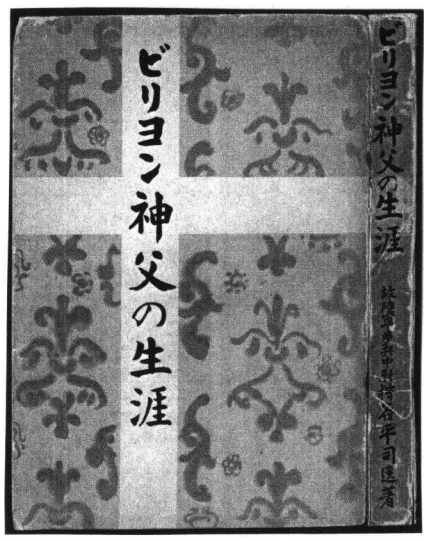 ビリヨン神父の生涯
ビリヨン神父の生涯
狩谷平司遺著